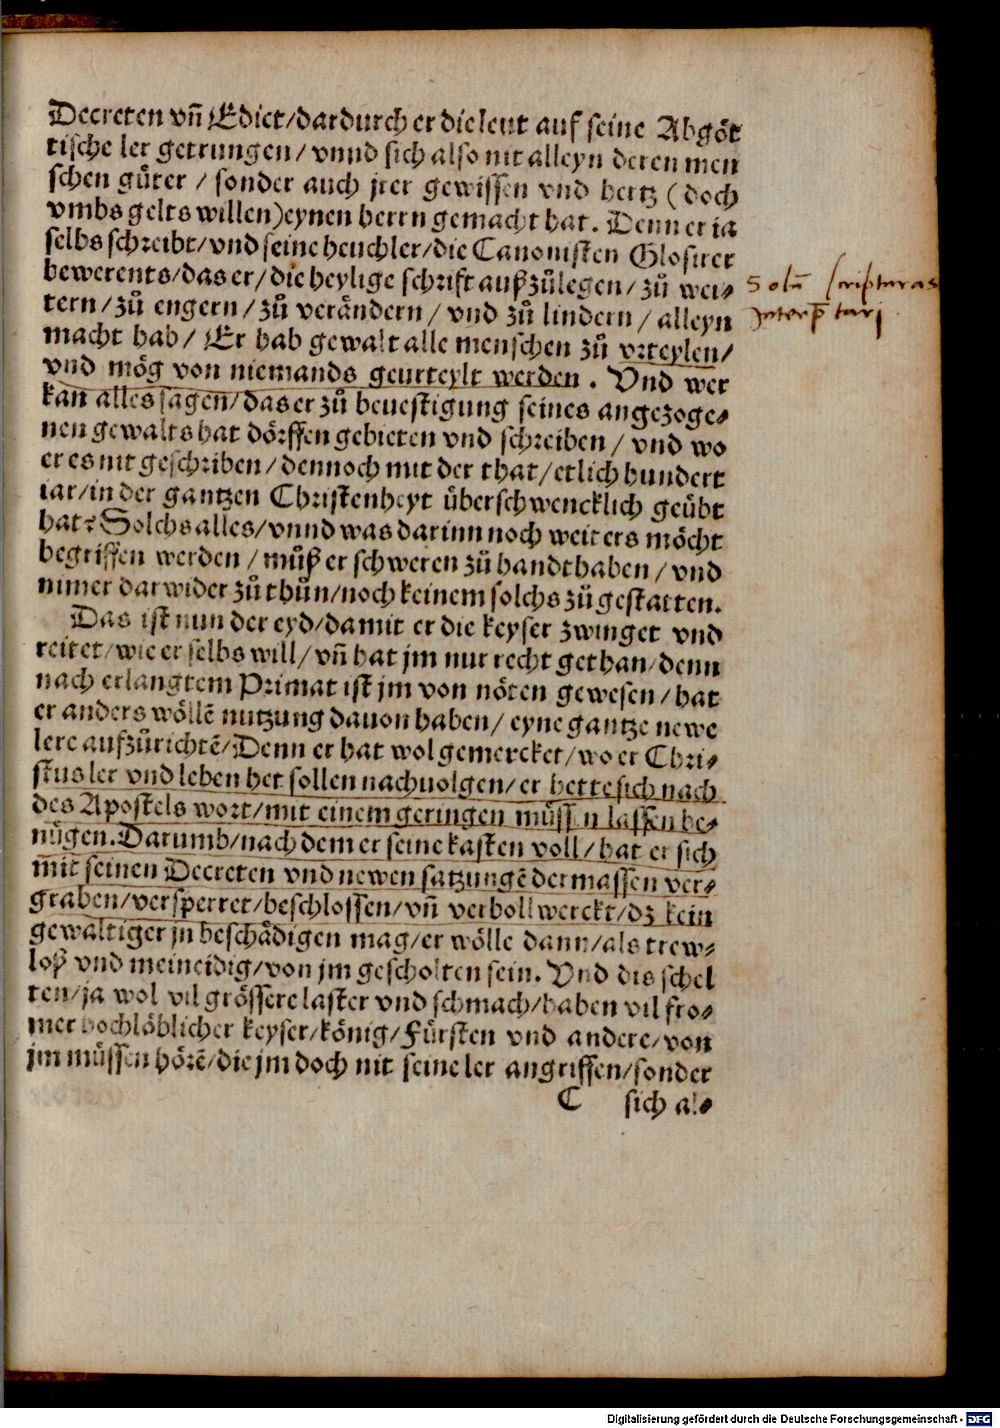 Decreten vñ Edict/dardurch er die leut auf seine Abgöt
tische ler getrungen/ vnnd sich also nit alleyn deren men
schen güter / sonder auch jrer gewissen vnd hertz (doch
vmbs gelts willen)eynen herrn gemacht hat. Denn er ja
selbs schreibt/vnd seine heuchler/die Canonisten Glosirer
bewerents/das er/die heylige schrift außzůlegen/ zů wei⸗
tern/zů engern/zů verändern/ vnd zů lindern/ alleyn
macht hab/ Er hab gewalt alle menschen zů vrteylen/
vnd mög von niemands geurteylt werden. Vnd wer
kan alles sagen/das er zů beuestigung seines angezoge⸗
nen gewalts hat dörffen gebieten vnd schreiben/ vnd wo
er es nit geschriben/dennoch mit der that/etlich hundert
iar/in der gantzen Christenheyt überschwencklich geübt
hat? Solchs alles/vnnd was darinn noch weiters möcht
begriffen werden/ můß er schweren zů handthaben/ vnd
nimer darwider zů thůn/noch keinem solchs zů gestatten.
Das ist nun der eyd/damit er die keyser zwinget vnd
reitet/wie er selbs will/vñ hat jm nur recht gethan/denn
nach erlangtem Primat ist jm von nöten gewesen/hat
er anders wöllē nutzung dauon haben/ eyne gantze newe
lere aufzůrichtē/Denn er hat wol gemercket/wo er Chri⸗
stus ler vnd leben het sollen nachuolgen/er hette sich nach
des Apostels wort/mit einem geringen müssen lassen be⸗
nügen. Darumb/nach dem er seine kasten voll/hat er sich
mit seinen Decreten vnd newen satzungē dermassen ver⸗
graben/versperret/beschlossen/vñ verbollwerckt/dz kein
gewaltiger jn beschädigen mag/er wölle dann/als trew⸗
loß vnd meineidig/von jm gescholten sein. Vnd dis schel
ten/ja wol vil grössere laster vnd schmach/haben vil fro⸗
mer hochlöblicher keyser/könig/Fürsten vnd andere/von
jm müssen hörē/die jm doch nit seine ler angriffen/sonder
C sich al⸗
Solū scripturas
Interp̄tarj
Digitalisierung gefördert durch die Deutsche Forschungsgemeinschaft - DFG